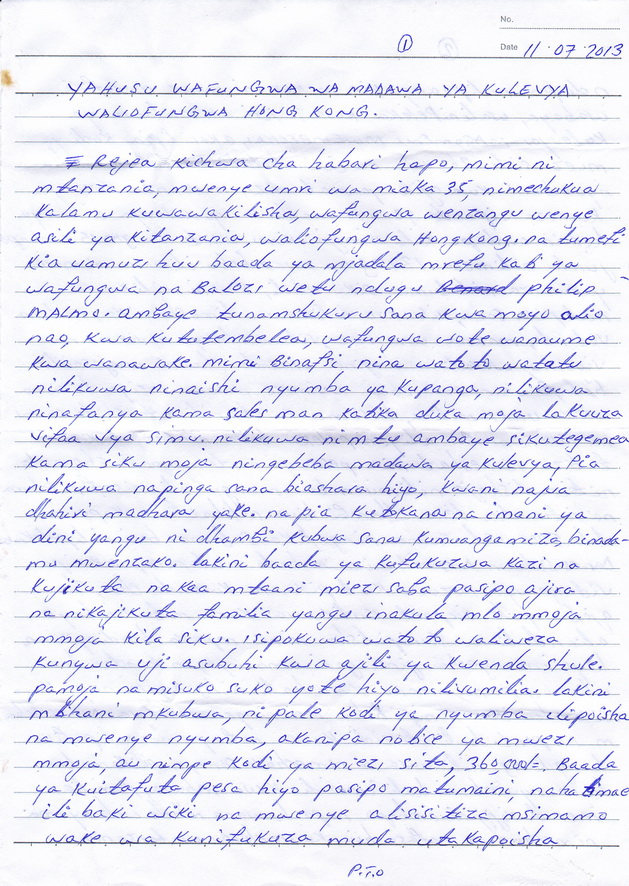 No.
①
Date 11.07.2013
YAHUSU WAFUNGWA WA MADAWA YA KULEVYA
WALIOFUNGWA HONG KONG.
Rejea kichwa cha habari hapo, mimi ni
mtanzania, mwenye umri wa miaka 35, nimechukua
kalamu kuwawakilisha, wafungwa wenzangu wenye
asili ya kitanzania, waliofungwa HongKong. na tumefi
kia uamuzi huu baada ya mjadala mrefu kati ya
wafungwa na Balozi wetu ndugu Benard philip
MALMO. ambaye tunamshukuru sana kwa moyo alio
nao, kwa kututembelea, wafungwa wote wanaume
kwa wanawake. mimi Binafsi nina watoto watatu
nilikuwa ninaishi nyumba ya kupanga, nilikuwa
ninafanya kama sales man katika duka moja la kuuza
vifaa vya simu. nilikuwa ni mtu ambaye sikutegemea
kama siku moja ningebeba madawa ya kulevya, Pia
nilikuwa napinga sana biashara hiyo, kwani najua
dhahiri madhara yake. na pia kutokana na imani ya
dini yangu ni dhambi kubwa sana kumuangamiza, binada-
mu mwenzako. lakini baada ya kufukuzwa kazi na
kujikuta nakaa mtaani miezi saba pasipo ajira
na nikajikuta familia yangu inakula mlo mmoja
mmoja kila siku. isipokuwa watoto waliweza
kunywa uji asubuhi kwa ajili ya kwenda shule.
pamoja na misuko suko yote hiyo nilivumilia. lakini
mtihani mkubwa, ni pale kodi ya nyumba ilipoisha
na mwenye nyumba, akanipa notice ya mwezi
mmoja, au nimpe kodi ya miezi sita, 360,000/=. Baada
ya kuitafuta pesa hiyo pasipo matumaini, hatimae
ili baki wiki na mwenye alisisitiza msimamo
wake wa kunifukuza muda utakapoisha
P.T.O